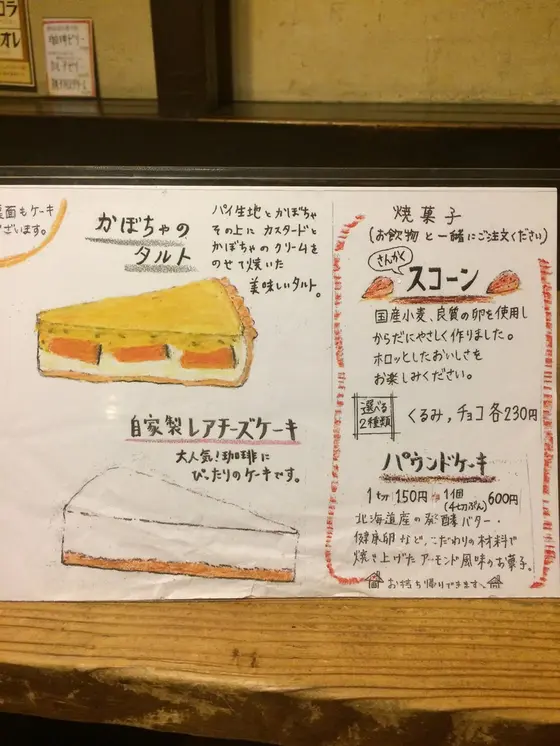 コラ
オレ
珈琲ゼリー
裏面もケーキ
ございます。
かぼちゃの
タルト
パイ生地とかぼちゃ
その上にカスタードと
かぼちゃのクリームを
のせて焼いた
美味しいタルト。
自家製レアチーズケーキ
大人気！珈琲に
ぴったりのケーキです。
焼菓子
(お飲物と一緒にご注文ください)
さんかく
スコーン
国産小麦、良質の卵を使用し
からだにやさしく作りました。
ホロッとしたおいしさを
お楽しみください。
選べる
2種類
くるみ,チョコ各230円
パウンドケーキ
1切150円 1個(4切ぶん)600円
北海道産の発酵バター・
健康卵など、こだわりの材料で
焼き上げたアーモンド風味のお菓子。
お持ち帰りできます